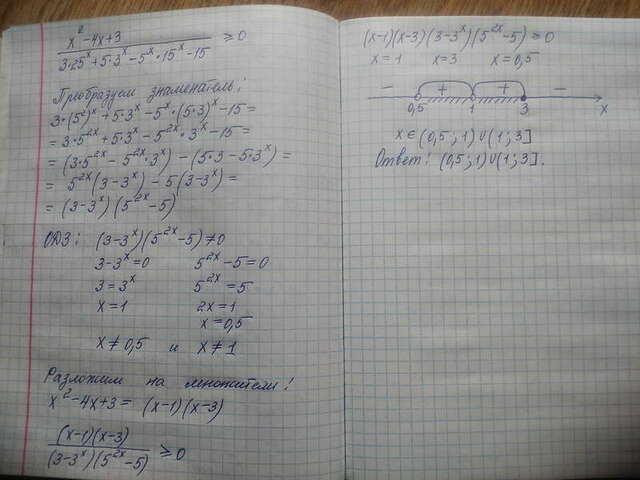 x² - 4x + 3
3·25ˣ + 5·3ˣ - 5ˣ·15ˣ - 15 ≥ 0
Преобразуем знаменатель:
3·(5²)ˣ + 5·3ˣ - 5ˣ·(5·3)ˣ - 15 =
= 3·5²ˣ + 5·3ˣ - 5²ˣ·3ˣ - 15 =
= (3·5²ˣ - 5²ˣ·3ˣ) - (5·3 - 5·3ˣ) =
= 5²ˣ(3 - 3ˣ) - 5(3 - 3ˣ) =
= (3 - 3ˣ)(5²ˣ - 5)
ОДЗ: (3 - 3ˣ)(5²ˣ - 5) ≠ 0
3 - 3ˣ = 0 5²ˣ - 5 = 0
3 = 3ˣ 5²ˣ = 5
x = 1 2x = 1
x = 0,5
x ≠ 0,5 и x ≠ 1
Разложим на множители:
x² - 4x + 3 = (x-1)(x-3)
(x-1)(x-3)
(3 - 3ˣ)(5²ˣ - 5) ≥ 0
(x-1)(x-3)(3-3ˣ)(5²ˣ-5) ≥ 0
x = 1 x = 3 x = 0,5
- + + -
0,5 1 3 x
x ∈ (0,5; 1) ∪ (1; 3]
Ответ: (0,5; 1) ∪ (1; 3].